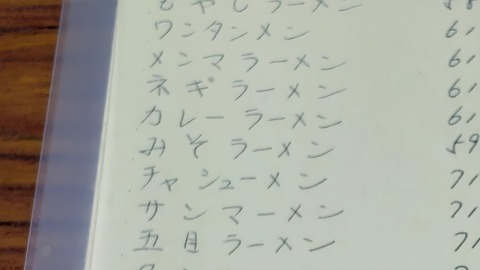 もやしラーメン 58
ワンタンメン 61
メンマラーメン 61
ネギラーメン 61
カレーラーメン 61
みそラーメン 59
チャシューメン 71
サンマーメン 71
五目ラーメン 71